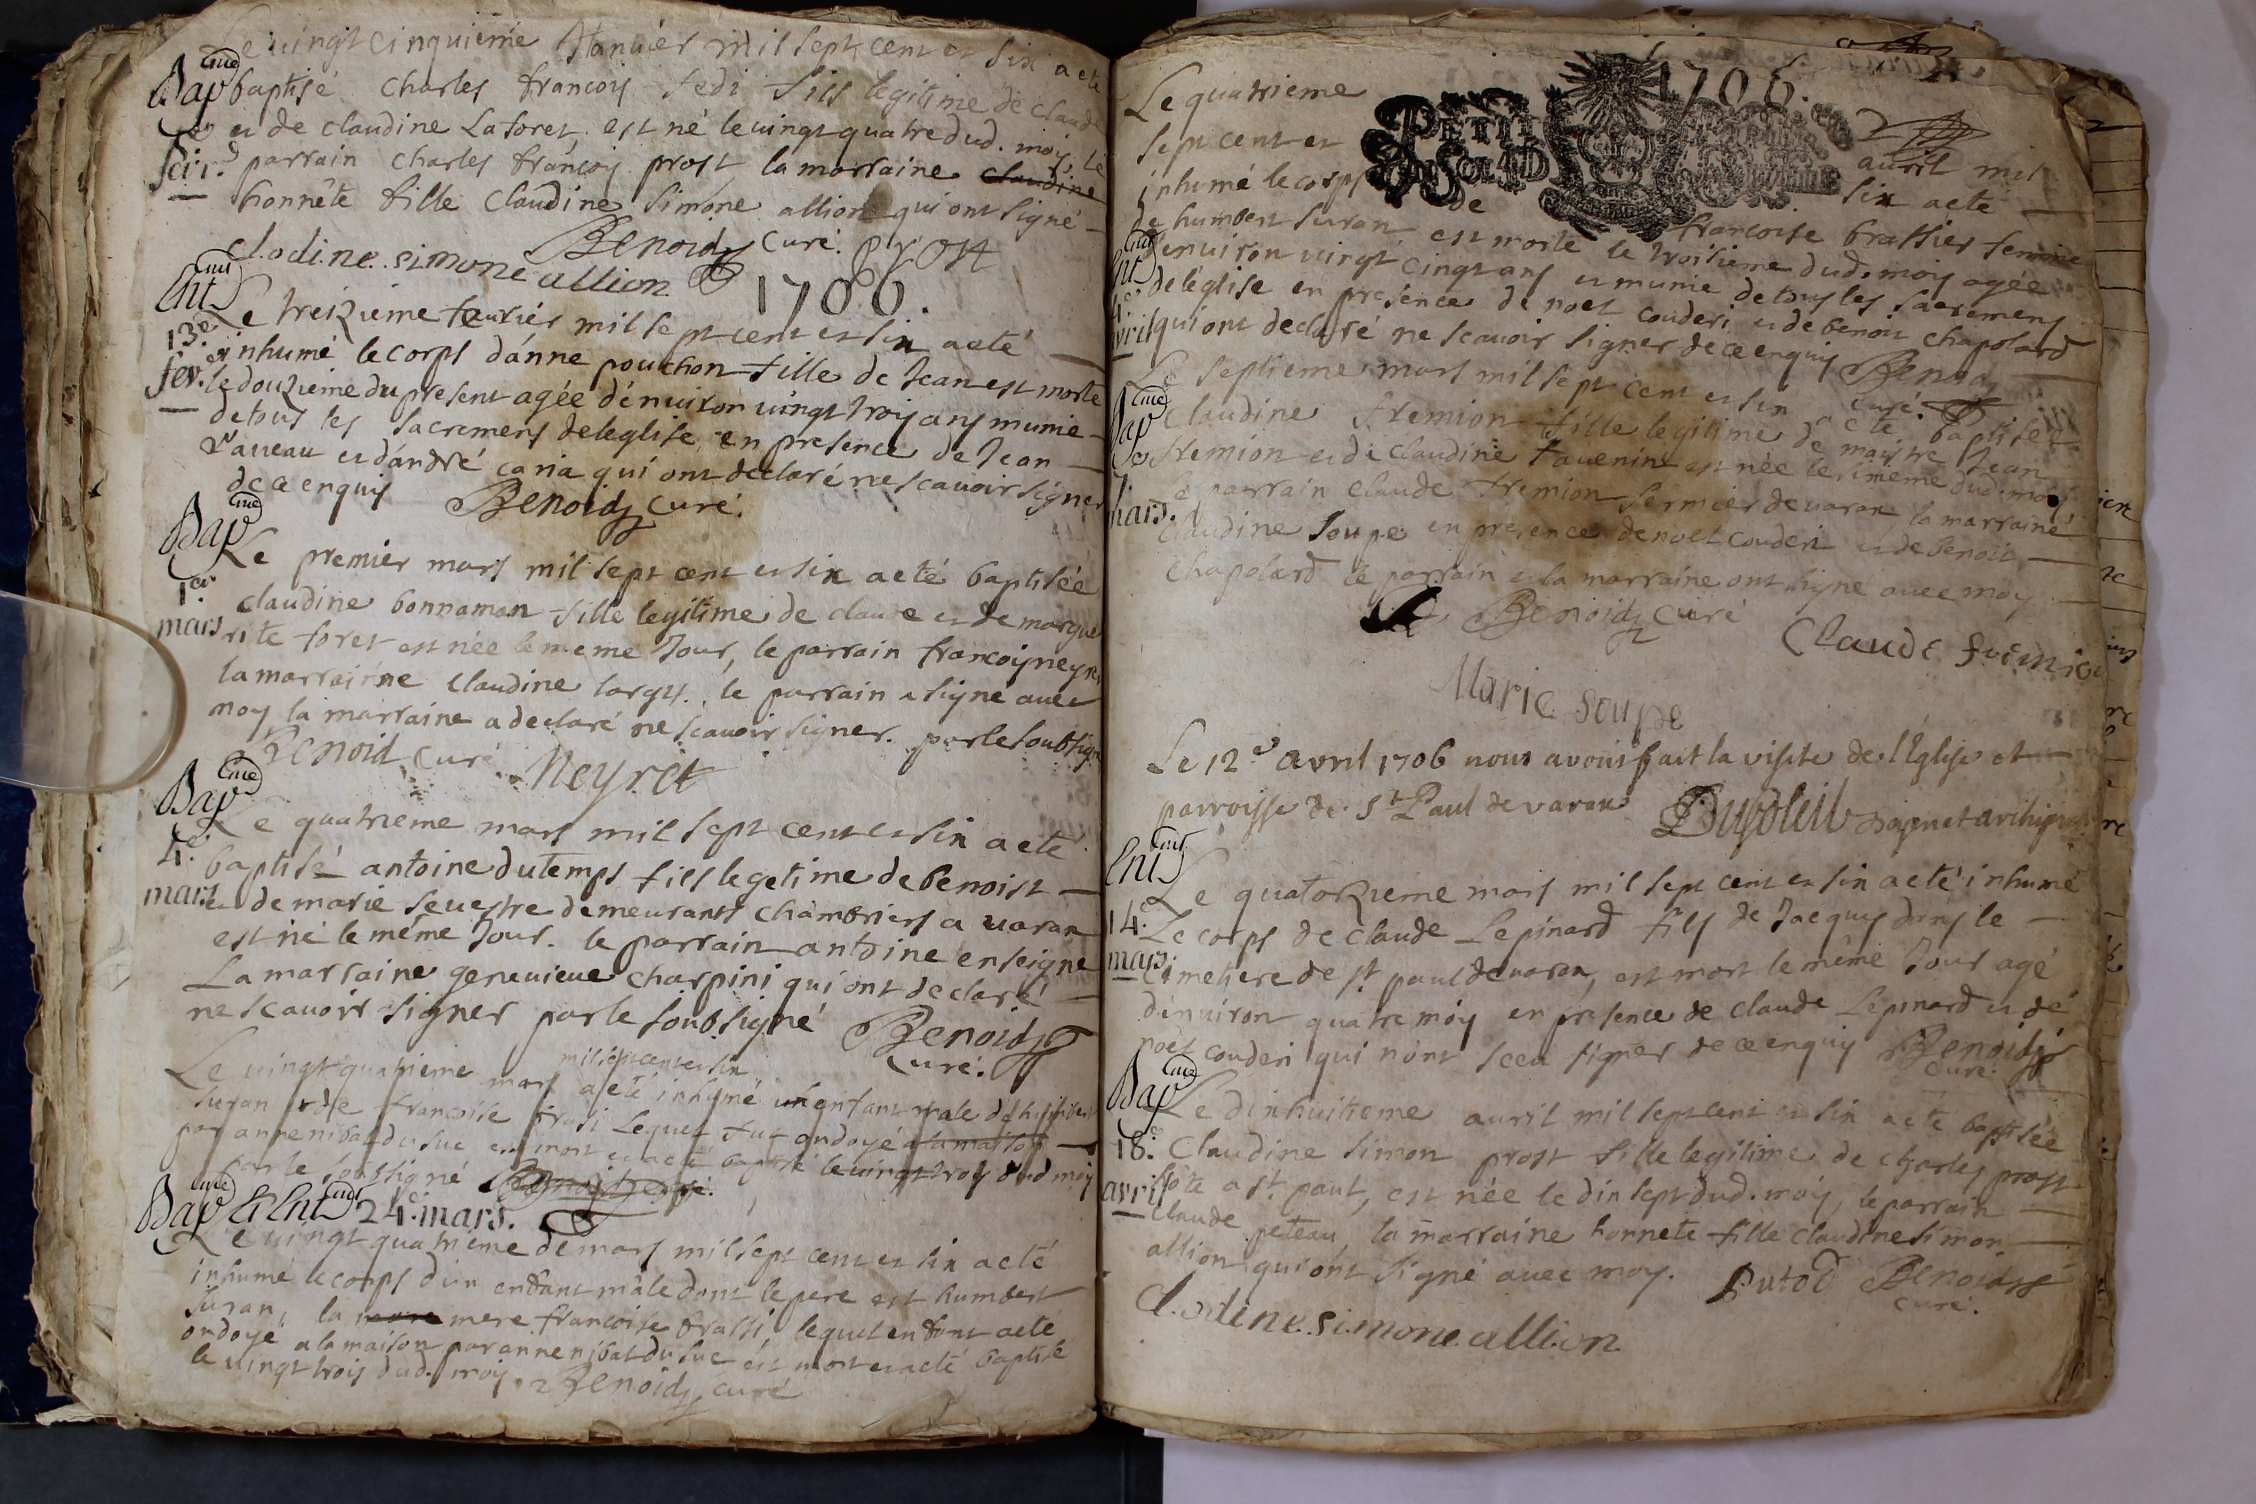 Le vingt cinquiéme Januiér mil sept cent et six a eté
baptisé charles francois fedi fils legitime de claude
et de claudine Laforet, est né le vingt quatre dud. mois, le
parrain charles françois prost la marraine claudine
honnête fille Claudine Simone allion qui ont signé
Benoid curé. prost
Clodine simone allion
Bapme
Ent
1706.
13e
fev.
Le treizieme feurier mil sept cent et six a eté
inhumé le corps d'anne pouchon fille de Jean est morte
le douzieme du present agée d'énuiron uingt trois ans munie
de tous les sacremens de l'eglise en presence de Jean
Vaueau et d'andré caria qui ont declaré ne scauoir signer
de ce enquis Benoid curé.
Bapme
1er
mars
Le premier mars mil sept cent et six a eté baptisée
claudine bonnaman fille legitime de claude et de margue
rite foret est née le meme Jour, le parrain francois neyret
la marraine claudine largis. le parrain a signé auec
moy la marraine a declaré ne scauoir signer. par le soubsigné
Benoid curé Neyret
Bapme
4e
mars
Le quatrieme mars mil sept cent et six a eté
baptisé antoine dutemps fils legetime de benoist
et de marie seuestre demeurants chambriers a uaran
est né le même Jour. le parrain antoine enseigne
La marraine geneuieue charpini qui ont declaré
ne scauoir signer par le soubsigné Benoid
curé.
mil sept cent et six
Le uingt quatrieme mars a eté inhumé un enfant male de humbert
suran et de francoise brasi Lequel fut ondoyé a la maison
par anne nibat du suc est mort et a eté baptisé le uingt trois dud moy
par le soussigné Benoid curé.
Bapme et Ent 24e mars.
Le uingt quatrieme de mars mil sept cent et six a eté
inhumé le corps d'un enfant mâle dont le pere est humbert
suran, la mere francoise brassi, lequel enfant a eté
ondoyé a la maison par anne nibat du suc est mort et a eté baptisé
le uingt trois dud. moy. Benoid curé
1706.
PETIT
Le quatrieme avril mil
sept cent et six a eté
inhumé le corps de francoise brassier femme
de humbert suran est morte le troisieme dud. mois agée
d'enuiron uingt cinq ans et munie de tous les sacremens
de l'église en presence de noel couderi et de benoit chapolard
qui ont declaré ne scauoir signer de ce enquis Benoid
curé.
Ent
4e
avril
Bapme
7e
mars.
Le septieme mars mil sept cent et six a eté baptisée
claudine fremion fille legitime de maistre Jean
fremion et de claudine tauenin est née le sixiéme dud. mois
le parrain claude fremion fermier de uaran, la marraine
claudine soupe en presence de noel couderi et de benoit
chapolard le parrain et la marraine ont signé auec moy
Benoid curé Claude fremion
Marie soupe
Le 12e avril 1706 nous avons fait la visite de l'Église et
parroisse de St Paul de varan
Ent
14e
mars.
Le quatorzieme mars mil sept cent et six a eté inhumé
Le corps de claude Lepinard fils de Jacques dans le
cimetiere de st. paul de uaran, est mort le même Jour agé
d'énuiron quatre moy en presence de claude Lepinard et de
noël couderi qui n'ont sceu signer de ce enquis Benoid
curé.
Bapme
18e
avril
Le dixhuitieme auril mil sept cent et six a eté baptisée
Claudine simon prost fille legitime de charles prost
hôte a st. paul, est née le dix sept dud. mois, le parrain
claude peteau, la marraine honnete fille claudine simon
allion qui ont signé auec moy. Benoid
curé.
Clodine simone allion